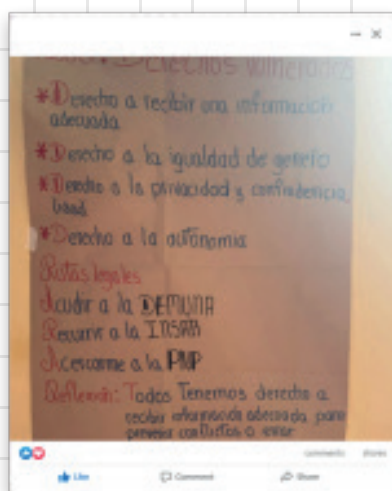 Derechos vulnerados
*Derecho a recibir una información
adecuada
*Derecho a la igualdad de genero
*Derecho a la privacidad y confidencia
lidad
*Derecho a la autonomia
Rutas legales
Acudir a la DEMUNA
Recurrir a la
Acercarme a la PNP
Reflexión: Todos Tenemos derecho a
recibir información adecuada para
prevenir conflictos o
comments shares
Like Comment Share